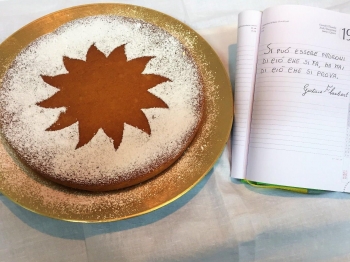 19
SI PUÒ ESSERE PADRONI
DI CIÒ CHE SI FA, MA MAI
DI CIÒ CHE SI PROVA.
Gustave Flaubert